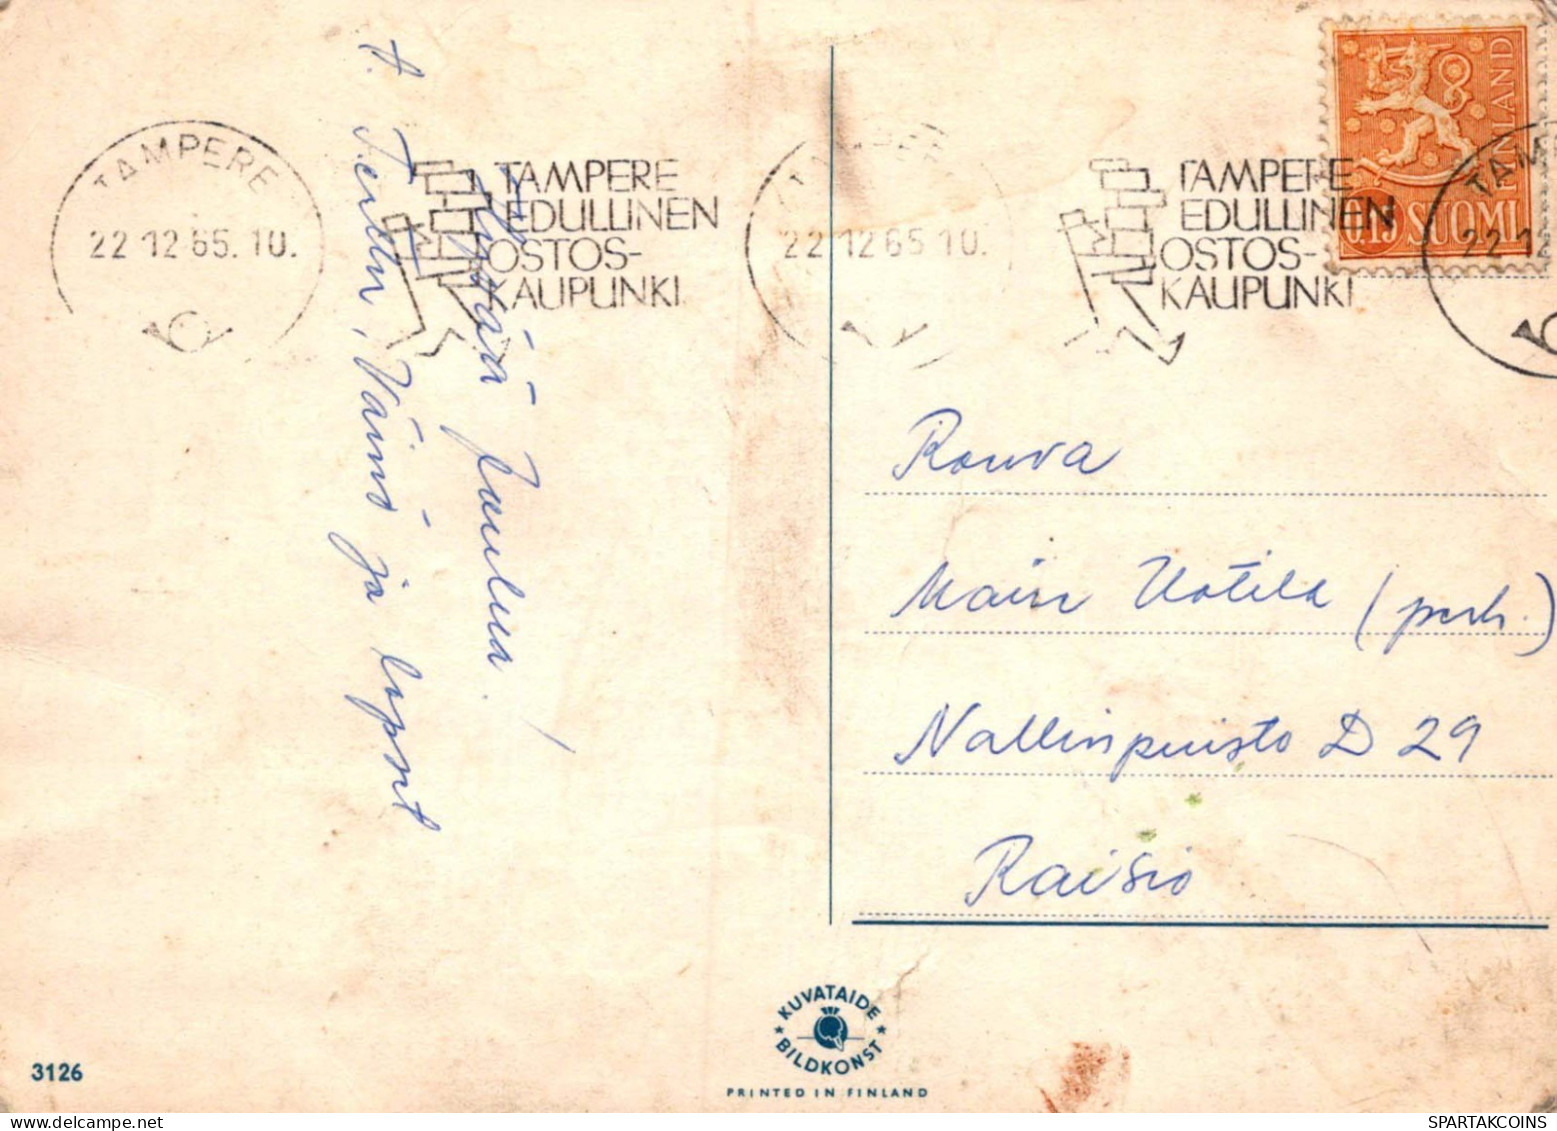 TAMPERE
22.12.65.10.
TAMPERE
EDULLINEN
OSTOS-
KAUPUNKI
TAMPERE
22.12.65.10.
TAMPERE
EDULLINEN
OSTOS-
KAUPUNKI
TAM
22.1
FINLAND
0,15 SUOMI
Hyvää Joulua!
t. Terttu, Väinö ja lapset
Rouva
Mairi Uotila (perh.)
Nallinpuisto D 29
Raisio
KUVATAIDE
BILDKONST
PRINTED IN FINLAND
3126
SPARTAKCOINS